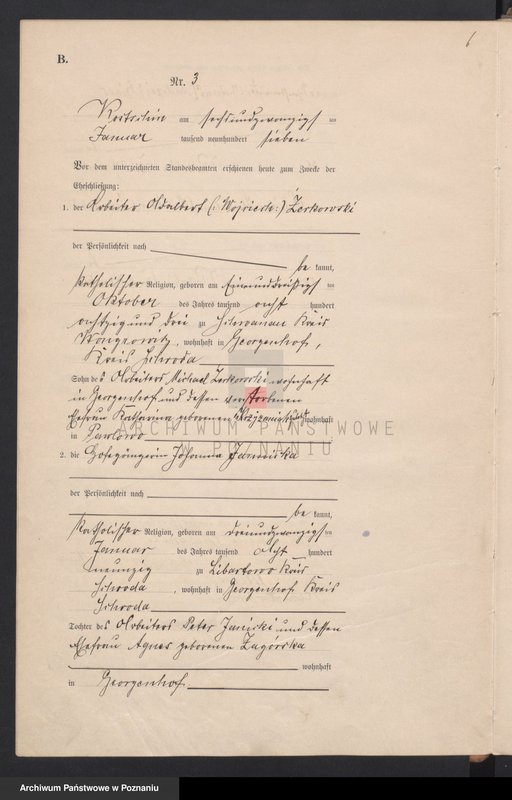 6
B.
Nr. 3
am sechsundzwanzigsten
Januar tausend neunhundert sieben
Vor dem unterzeichneten Standesbeamten erschienen heute zum Zwecke der
Eheschließung:
1. der Arbeiter Adalbert (: Wojciech :) Zerkowski
der Persönlichkeit nach
be kannt,
katholischer Religion, geboren am einunddreißigsten
Oktober des Jahres tausend acht hundert
achtzig und drei zu Kreis
, wohnhaft in Georgenhof,
Kreis Schroda
Sohn des Arbeiters Michael Zerkowski wohnhaft
in Georgenhof und dessen verstorbenen
Ehefrau Katharina geborenen zuletzt wohnhaft
in Pawlowo
ARCHIWUM PAŃSTWOWE
W POZNANIU
2. die Johanna Janiska
der Persönlichkeit nach
be kannt,
katholischer Religion, geboren am dreiundzwanzigsten
Januar des Jahres tausend acht hundert
neunzig zu Libartowo Kreis
Schroda, wohnhaft in Georgenhof Kreis
Schroda
Tochter des Arbeiters Peter Janiski und dessen
Ehefrau Agnes geborenen Zagórska
wohnhaft
in Georgenhof
Archiwum Państwowe w Poznaniu